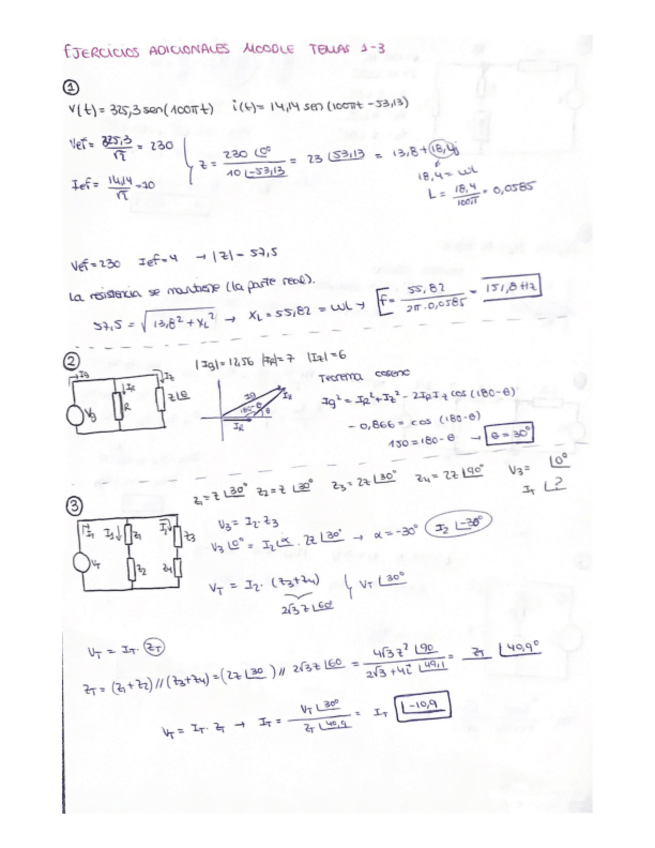 EJERCICIOS ADICIONALES MOODLE TEMAS 1-3
①
V(t)=325,3sen(100πt) i(t)=14,14 sen(100πt-53,13)
Vef=325,3/√2=230
Ief=14,14/√2=10
Z=230∠0°/10∠-53,13=23∠53,13=13,8+18,4j
18,4=ωL
L=18,4/100π=0,0585
Vef=230 Ief=4 →|Z|=57,5
La resistencia se mantiene (la parte real).
57,5=√(13,8²+XL²) → XL=55,82=ωL → f=55,82/2π·0,0585=151,8Hz
②
|Ig|=12,56 |IR|=7 |Iz|=6
Ig
IR
Iz
Vg
R
Z∠θ
Ig
Iz
180-θ
θ
IR
Teorema coseno
Ig²=IR²+Iz²-2IR Iz cos(180-θ)
-0,866=cos(180-θ)
150=180-θ → θ=30°
③
Z1=Z∠30° Z2=Z∠30° Z3=2Z∠30° Z4=2Z∠90° V3=∠0°
IT∠?
IT
Z1
Z3
VT
Z2
Z4
V3=I2·Z3
V3∠0°=I2∠α·2Z∠30° → α=-30° I2∠-30°
VT=I2·(Z3+Z4)
2√3Z∠60°
VT∠30°
VT=IT·ZT
ZT=(Z1+Z2)//(Z3+Z4)=(2Z∠30)//2√3Z∠60=4√3Z²∠90/2√3+4Z∠49,1=ZT∠40,9°
VT=IT·ZT → IT=VT∠30°/ZT∠40,9=IT∠-10,9